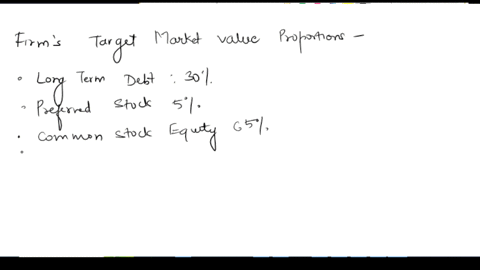 Firm's Target Market value Proportions -
• Long Term Debt : 30%.
• Preferred Stock 5%.
• Common Stock Equity 65%.
•